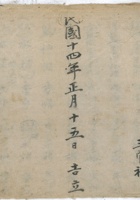 民國十四年正月十五日吉立